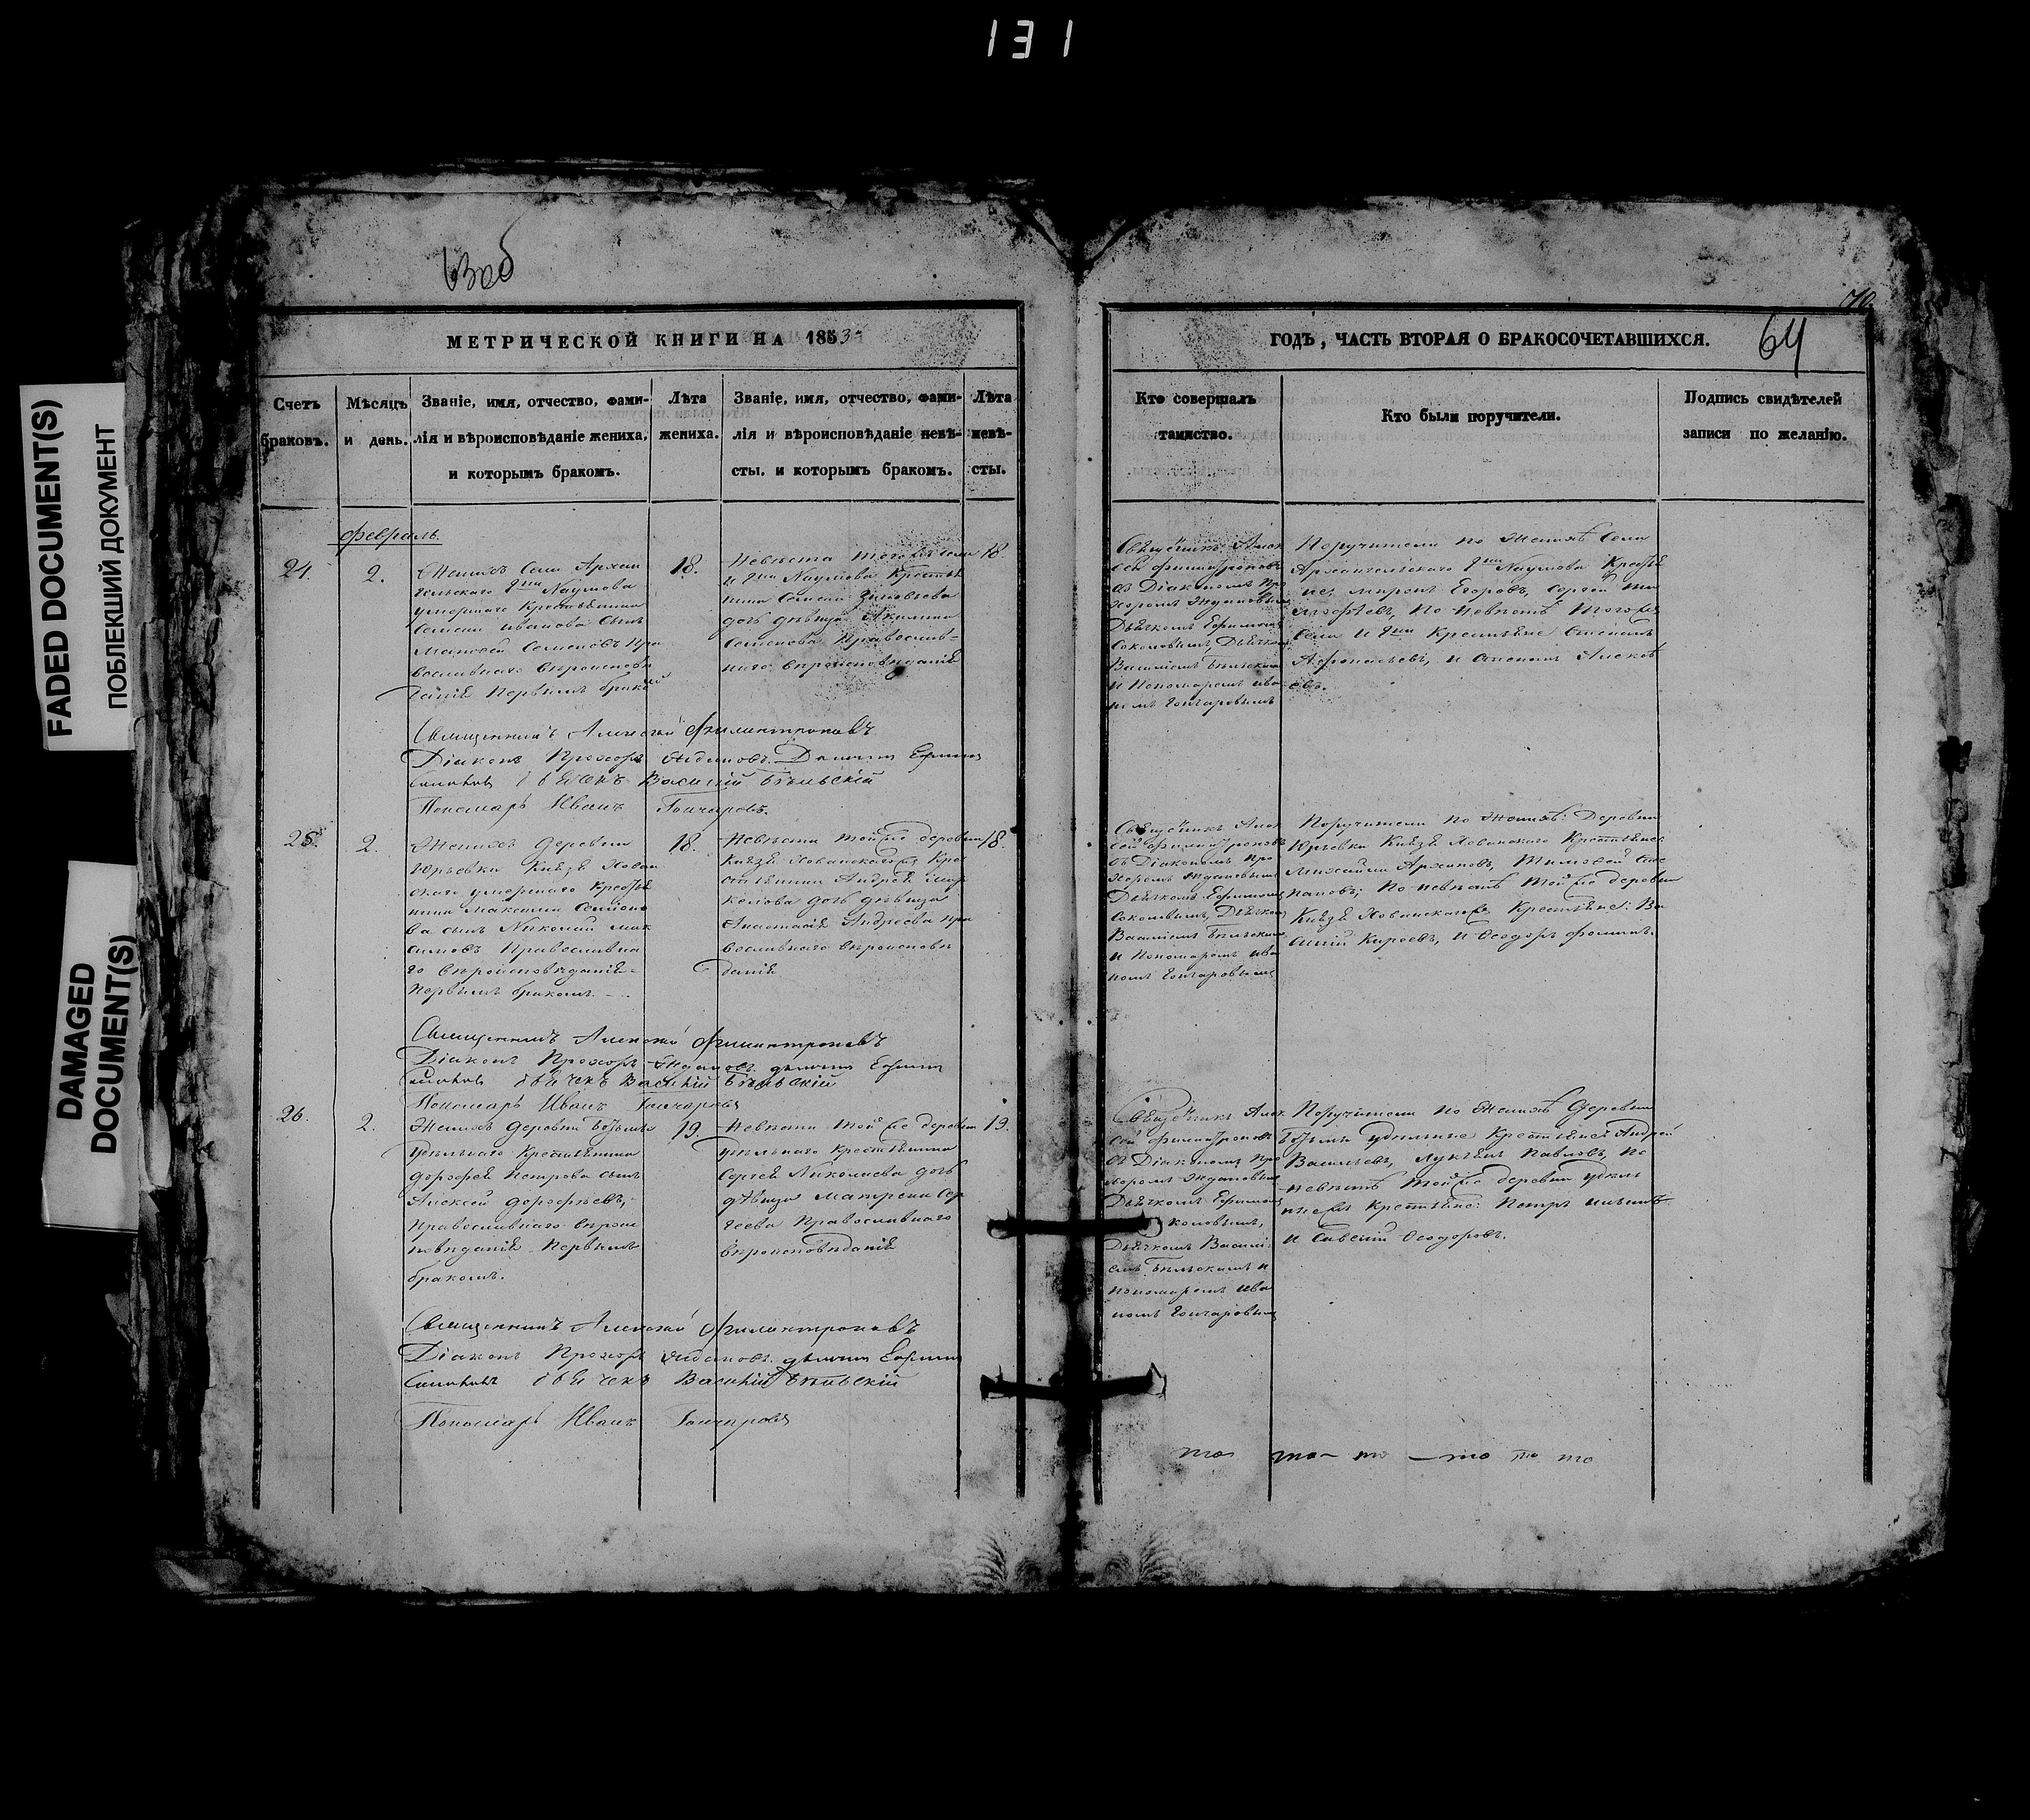 131
FADED DOCUMENT(S)
ПОБЛЕКШИЙ ДОКУМЕНТ
DAMAGED
DOCUMENT(S)
70.
64
МЕТРИЧЕСКОЙ КНИГИ НА 1853
ГОДЪ, ЧАСТЬ ВТОРАЯ О БРАКОСОЧЕТАВШИХСЯ.
Счетъ
браковъ.
Мѣсяцъ
и день.
Званіе, имя, отчество, фами-
лія и вѣроисповѣданіе жениха,
и которымъ бракомъ.
Лѣта
жениха.
Званіе, имя, отчество, фами-
лія и вѣроисповѣданіе невѣ-
сты. и которымъ бракомъ.
Лѣта
невѣ-
сты.
Кто совершалъ
таинство.
Кто были поручители.
Подпись свидѣтелей
записи по желанію.
Февраль.
24.
2.
Женихъ Села Архан
гельскаго Наумова
умершаго Крестьянина
Семена Иванова сынъ
Семеновъ Пра
вославнаго вѣроисповѣ
данія первымъ бракомъ
18.
Невѣста того же села
и Наумова Крестья
нина Семена Зиновьева
дочь дѣвица Акилина
Семенова Православ=
наго вѣроисповѣданія
18.
Священникъ Алек
сѣй Филантроповъ
съ Діакономъ Про
хоромъ Ждановымъ
Дьячкомъ Ефимомъ
Соколовымъ, Дьячком
Василіемъ Бѣльским
и Пономаремъ Ива
номъ Гончаровымъ
Поручители по Женихѣ Села
Архангельскаго Наумова Кресть
Миронъ Егоровъ, Сергей Ти
мофѣевъ, по Невѣстѣ того же
Села и Крестьяне Степанъ
Афонасьевъ, и Степанъ Алексѣ
евъ.
Священникъ Алексѣй Филантроповъ
Діаконъ Прохоръ Ждановъ. Дьячокъ Ефимъ
Соколовъ Дьячекъ Василій Бѣльскій
Пономарь Иванъ Гончаровъ.
25.
2.
Женихъ деревни
Юрьевки Князя Хован
скаго умершаго Кресть
нина Максима Семіоно
ва сынъ Николай Мак
симовъ Православна
го вѣроисповѣданія=
первымъ бракомъ.
18.
Невѣста той же деревни
Князя Хованскаго же Кре
стьянина Андрея Мар
келова дочь дѣвица
Анастасія Андреева пра
вославнаго вѣроисповѣ
данія
18.
Священникъ Алек
сѣй Филантроповъ
съ Діакономъ Про
хоромъ Ждановымъ
Дьячкомъ Ефимомъ
Соколовымъ, Дьячком
Василіемъ Бѣльским
и Пономаремъ Ива
номъ Гончаровымъ
Поручители по Женихѣ: Деревни
Юрьевки Князя Хованскаго Крестьяне:
Михайла Архиповъ, Тимофей Сте
пановъ; по невѣстѣ той же деревни
Князя Хованскаго же Крестьяне: Ва
силій Кирѣевъ, и Ѳеодоръ Фоминъ.
Священникъ Алексѣй Филантроповъ
Діаконъ Прохоръ Ждановъ. Дьячокъ Ефимъ
Соколовъ Дьячекъ Василій Бѣльскій
Пономарь Иванъ Гончаровъ
26.
2.
Женихъ деревни
Удѣльнаго Крестьянина
Дорофея Петрова сынъ
Алексѣй Дорофѣевъ,
Православнаго вѣрои
повѣданія первымъ
бракомъ.
19.
Невѣста той же деревни
Удѣльнаго крестьянина
Сергея Николаева дочь
дѣвица Матрена Сер
геева Православнаго
вѣроисповѣданія
19.
Священникъ Алек
сѣй Филантроповъ
съ Діакономъ Про
хоромъ Ждановым
Дьячкомъ Ефимомъ
коловымъ,
Дьячкомъ Василі
емъ Бѣльскимъ и
пономаремъ Ива
номъ Гончаровымъ
Поручители по Женихѣ Деревни
удѣльные Крестьяне Андрей
Васильевъ, Лукьянъ Павловъ, по
невѣстѣ той же деревни удѣль
ные же Крестьяне: Петръ
и Савелій Ѳеодоровъ.
Священникъ Алексѣй Филантроповъ
Діаконъ Прохоръ Ждановъ. Дьячокъ Ефимъ
Соколовъ Дьячекъ Василій Бѣльскій
Пономарь Иванъ Гончаровъ